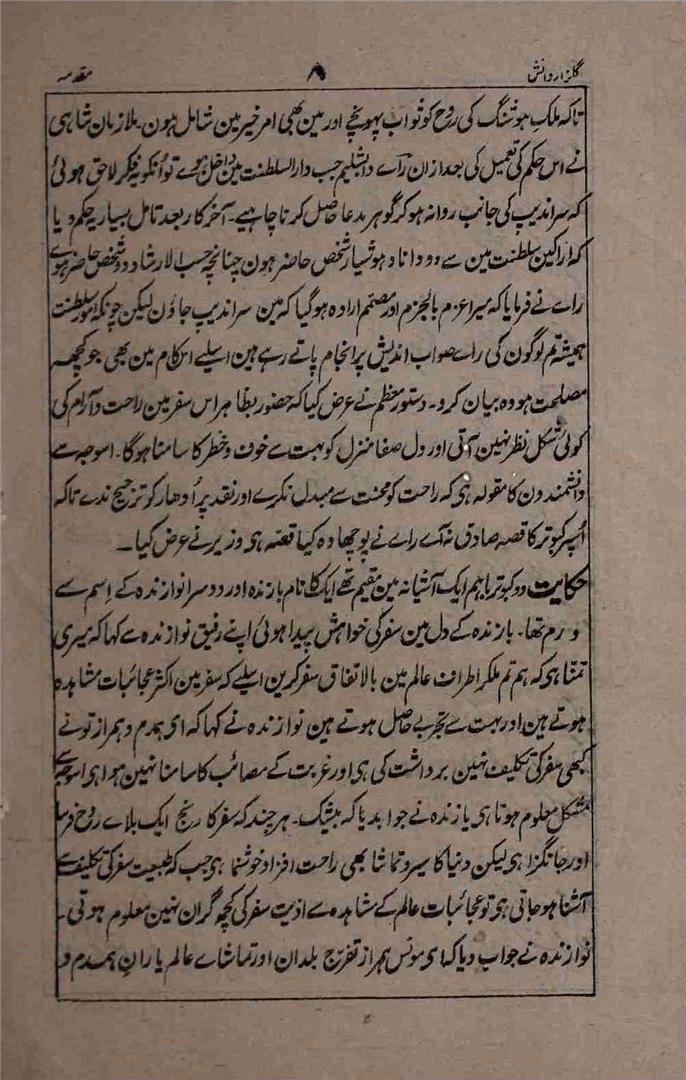 گلزار دانش ۸ مقدمہ
تاکہ ملک ہوشنگ کی روح کو ثواب پہونچے اور مین بھی امر خیر مین شامل ہون۔ ملازمان شاہی
نے اس حکم کی تعمیل کی بعد ازان راے دابشلیم جب دار السلطنت مین داخل ہوے تو اُنکو یہ فکر لاحق ہوئی
کہ سراندیپ کی جانب روانہ ہوکر گوہر مدعا حاصل کرنا چاہیے۔ آخر کار بعد تامل بسیار یہ حکم دیا
کہ اراکین سلطنت مین سے دو دانا و ہوشیار شخص حاضر ہون چنانچہ حسب الارشاد دو شخص حاضر ہوے
راے نے فرمایا کہ میرا عزم بالجزم اور مصمم ارادہ ہوگیا کہ مین سراندیپ جاؤن لیکن چونکہ امور سلطنت
ہمیشہ تم لوگون کی راے صواب اندیش پر انجام پاتے رہے ہین اسلیے اس کام مین بھی جو کچھہ
مصلحت ہو وہ بیان کرو۔ دستور معظم نے عرض کیا کہ حضور بظاہر اس سفر مین راحت و آرام کی
کوئی شکل نظر نہین آتی اور دل صفا منزل کو بہت سے خوف و خطر کا سامنا ہوگا۔ اسوجہ سے
دانشمندون کا مقولہ ہی کہ راحت کو محنت سے مبدل نکرے اور نقد پر اُدھار کو ترجیح ندے تاکہ
اُسپر کبوتر کا قصہ صادق نہ آے راے نے پوچھا وہ کیا قصہ ہی وزیر نے عرض کیا۔
حکایت دو کبوتر باہم ایک آشیانہ مین مقیم تھے ایک کا نام بازندہ اور دوسرا نوازندہ کے اِسم سے
موسوم تھا۔ بازندہ کے دل مین سفر کی خواہش پیدا ہوئی اپنے رفیق نوازندہ سے کہا کہ میری
تمنا ہی کہ ہم تم ملکر اطراف عالم مین بالاتفاق سفر کرین اسلیے کہ سفر مین اکثر عجائبات مشاہدہ
ہوتے ہین اور بہت سے تجربے حاصل ہوتے ہین نوازندہ نے کہا کہ ای ہمدم و ہمراز تونے
کبھی سفر کی تکلیف نہین برداشت کی ہی اور غربت کے مصائب کا سامنا نہین ہوا ہی اسوجہ سے
مشکل معلوم ہوتا ہی بازندہ نے جواب دیا کہ بیشک۔ ہر چند کہ سفر کا رنج ایک بلاے روح فرسا
اور جانگزا ہی لیکن دنیا کا سیر و تماشا بھی راحت افزا و خوشنما ہی جب کہ طبیعت سفر کی تکلیف سے
آشنا ہو جاتی ہی تو عجائبات عالم کے مشاہدہ سے اذیت سفر کی کچھ گران نہین معلوم ہوتی۔
نوازندہ نے جواب دیا کہ ای مونس ہمراز تفرج بلدان اور تماشاے عالم یاران ہمدم و